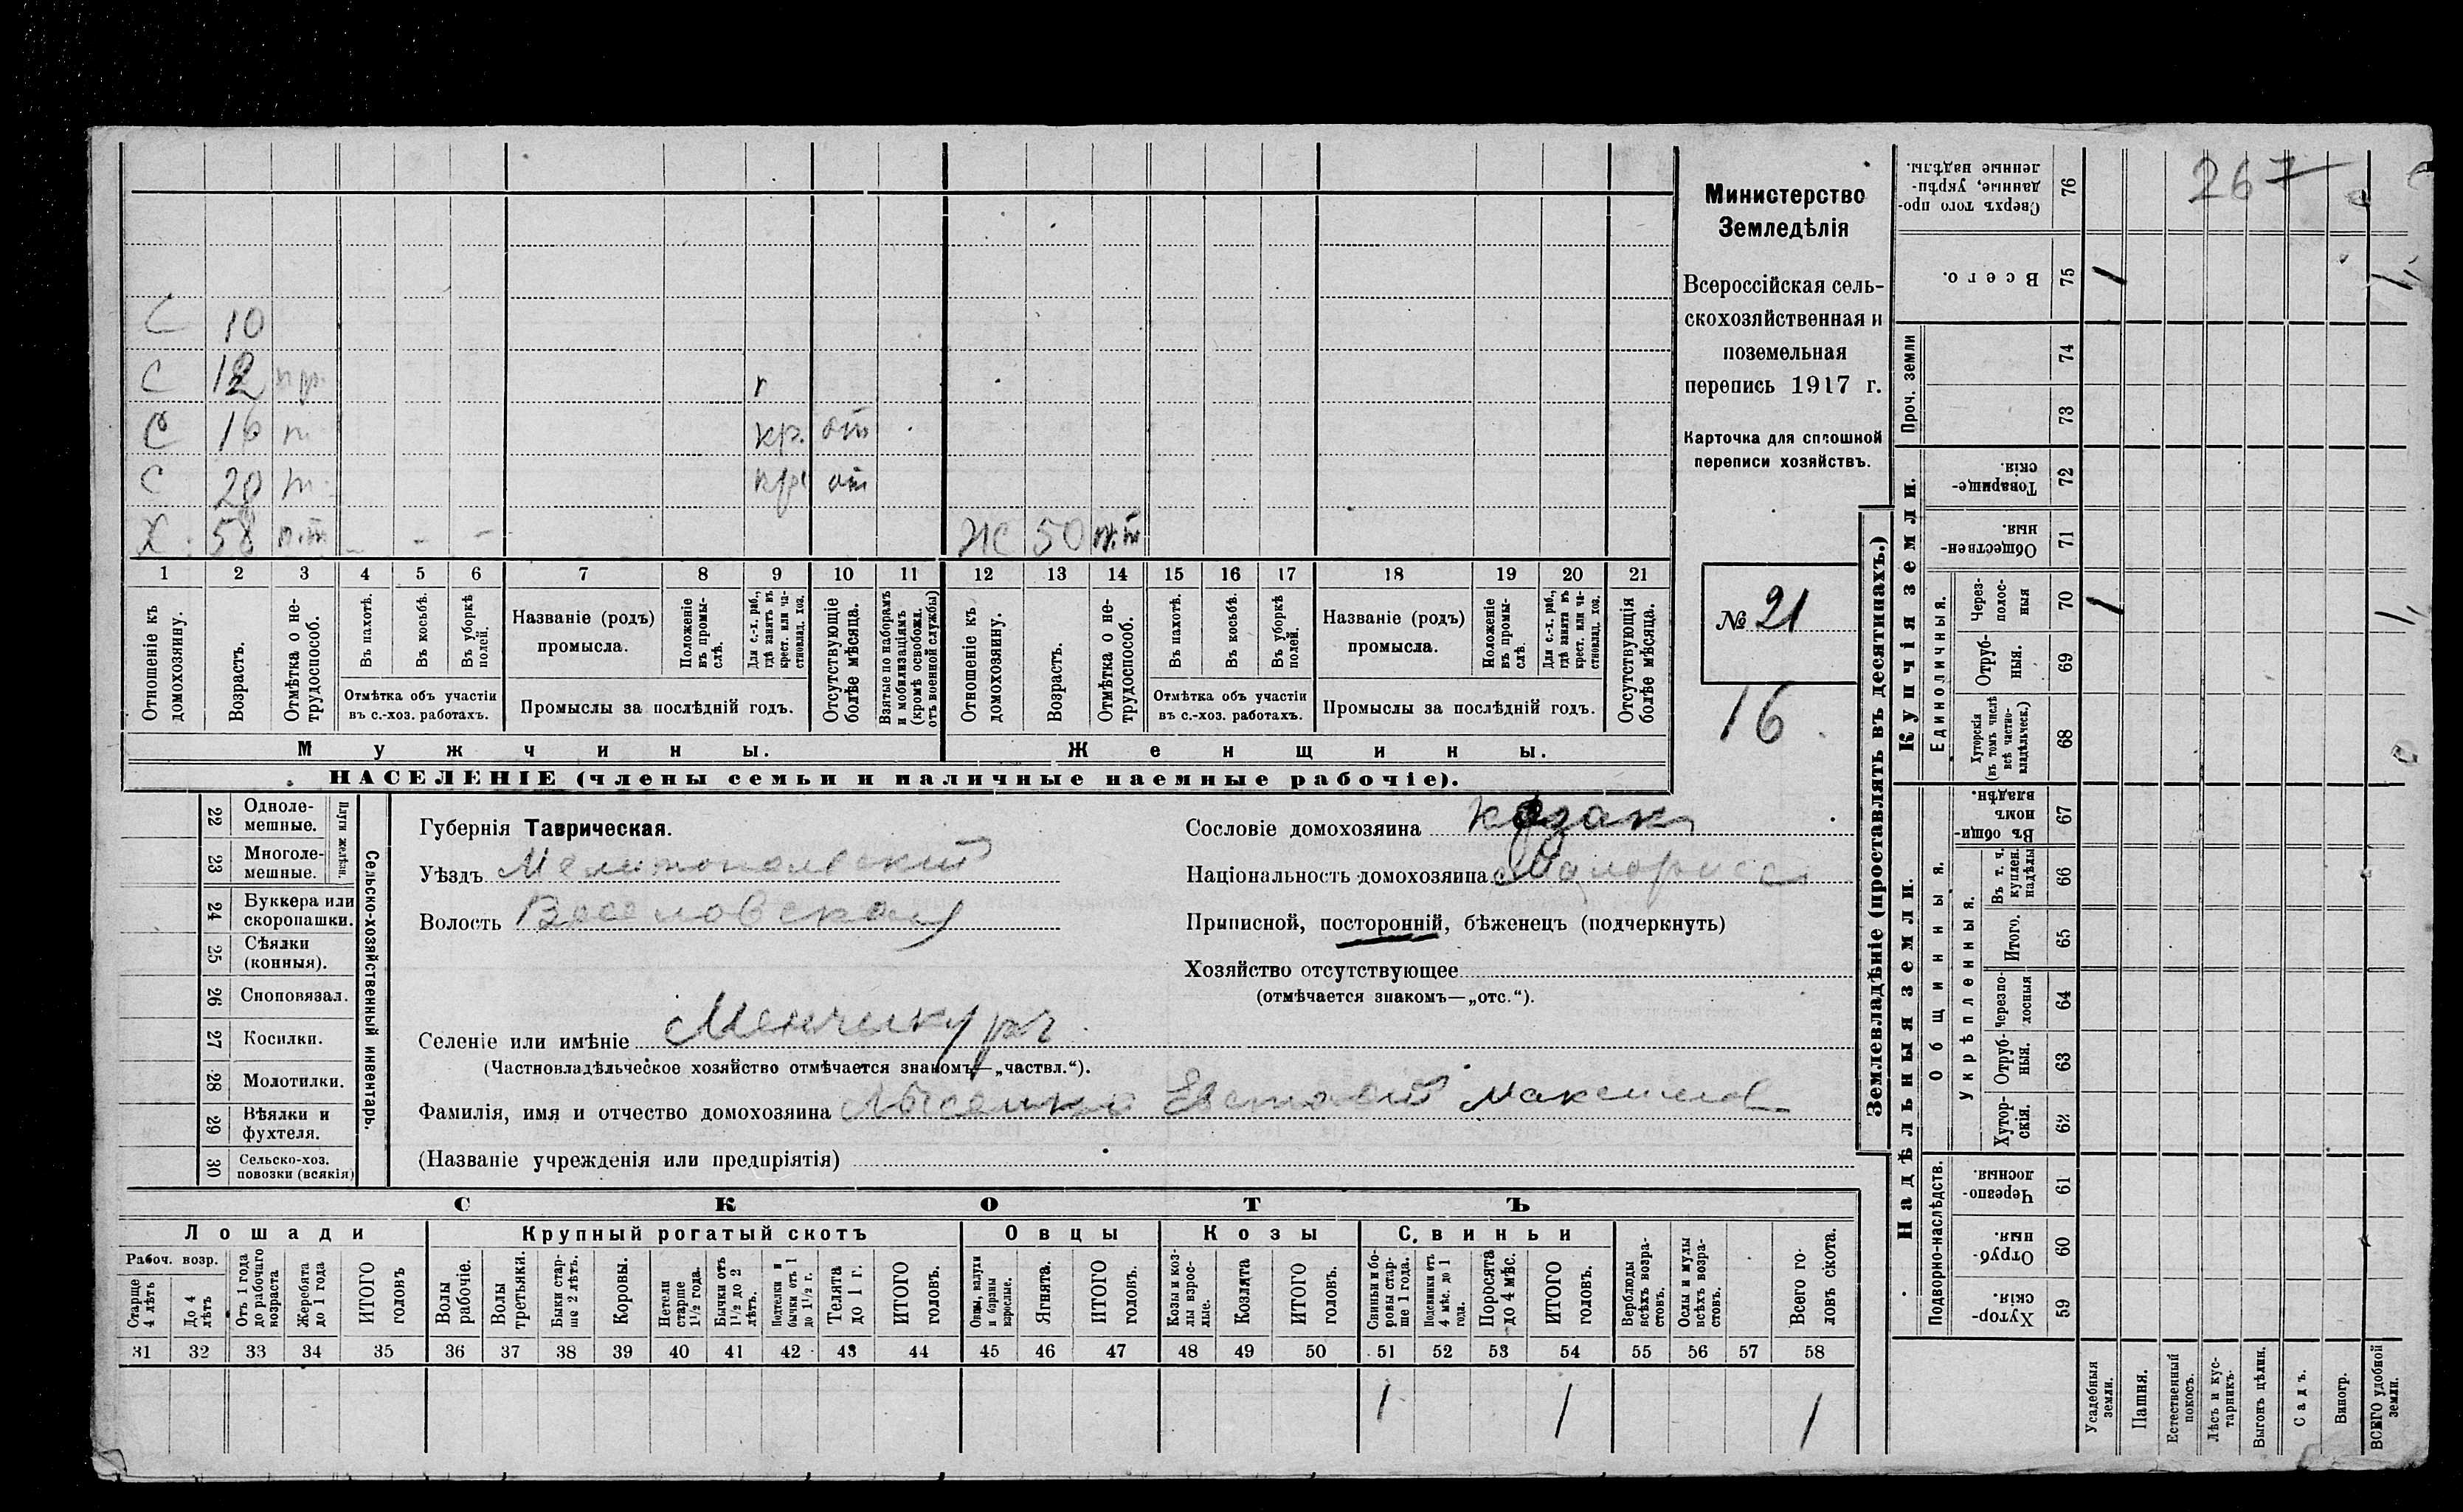 С 10
С 12
г
С 16 т
кр. от
С 20 т
кр. от
Х 58 п.т – – –
Ж 50 п.т
1 2 3 4 5 6 7 8 9 10 11 12 13 14 15 16 17 18 19 20 21
Отношеніе къ домохозяину.
Возрасть.
Отмѣтка о не-трудоспособ.
Въ пахотѣ.
Въ косьбѣ.
Въ уборкѣ полей.
Отмѣтка объ участіи
въ с.-хоз. работахъ.
Названіе (родъ)
промысла.
Положеніе въ промы-слѣ.
Для с.-х. раб., гдѣ занятъ въ крест. или ча-стновлад. хоз.
Промыслы за послѣдній годъ.
Отсутствующіе болѣе мѣсяца.
Взятые по наборамъ и мобилизаціямъ (кромѣ освобожд. отъ военной службы)
Отношеніе къ домохозяину.
Возрастъ.
Отмѣтка о не-трудоспособ.
Въ пахотѣ.
Въ косьбѣ.
Въ уборкѣ полей.
Отмѣтка объ участіи
въ с.-хоз. работахъ.
Названіе (родъ)
промысла.
Положеніе въ промы-слѣ.
Для с.-х. раб., гдѣ занята въ крест. или ча-стновлад. хоз.
Промыслы за послѣдній годъ.
Отсутствующія болѣе мѣсяца.
Мужчины.
Женщины.
НАСЕЛЕНІЕ (члены семьи и наличные наемные рабочіе).
Министерство
Земледѣлія
Всероссійская сель-
скохозяйственная и
поземельная
перепись 1917 г.
Карточка для сплошной
переписи хозяйствъ.
№ 21
16
22 Одноле-мешные.
23 Многоле-мешные.
Плуги желѣзн.
24 Буккера или скоропашки.
25 Сѣялки (конныя).
26 Сноповязал.
27 Косилки.
28 Молотилки.
29 Вѣялки и фухтеля.
30 Сельско-хоз. повозки (всякія)
Сельско-хозяйственный инвентарь.
Губернія Таврическая.
Уѣздъ Мелитопольскій
Волость Веселовская
Сословіе домохозяина козак
Національность домохозяина Малоросс
Приписной, посторонній, бѣженецъ (подчеркнуть)
Хозяйство отсутствующее
(отмѣчается знакомъ—„отс.“).
Селеніе или имѣніе Менчекуръ
(Частновладѣльческое хозяйство отмѣчается знакомъ—„частвл.“).
Фамилія, имя и отчество домохозяина Лысенко Евстафій Максимов
(Названіе учрежденія или предпріятія)
СКОТЪ
Лошади
Крупный рогатый скотъ
Овцы
Козы
Свиньи
Рабоч. возр.
Старше 4 лѣтъ
До 4 лѣтъ
Отъ 1 года до рабочаго возраста
Жеребята до 1 года
ИТОГО головъ
Волы рабочіе.
Волы третьяки.
Быки стар-ше 2 лѣтъ.
Коровы.
Нетели старше 1½ года.
Бычки отъ 1½ до 2 лѣтъ.
Подтелки и бычки отъ 1 до 1½ г.
Телята до 1 г.
ИТОГО головъ.
Овцы, валухи и бараны взрослые.
Ягнята.
ИТОГО головъ.
Козы и коз-лы взрос-лые.
Козлята
ИТОГО головъ.
Свиньи и бо-ровы стар-ше 1 года.
Подсвинки отъ 4 мѣс. до 1 года.
Поросята до 4 мѣс.
ИТОГО головъ.
Верблюды всѣхъ возра-стовъ.
Ослы и мулы всѣхъ возра-стовъ.
Всего го-ловъ скота.
31 32 33 34 35 36 37 38 39 40 41 42 43 44 45 46 47 48 49 50 51 52 53 54 55 56 57 58
1 1 1
Землевладѣніе (проставлять въ десятинахъ.)
Купчія земли.
Надѣльныя земли.
267
Сверхъ того про-данные, укрѣп-ленные надѣлы. 76
Всего. 75
Проч. земли
74
73
Товарище-скія. 72
Обществен-ныя. 71
Единоличныя.
Через-полос-ныя 70
Отруб-ныя. 69
Хуторскія (въ томъ числѣ всѣ частно-владѣльческ.) 68
Въ общи-номъ владѣн. 67
Общинныя.
Укрѣпленныя.
Въ т. ч. куплен. надѣлы 66
Итого. 65
Черезпо-лосныя 64
Отруб-ныя. 63
Хутор-скія. 62
Подворно-наслѣдств.
Черезпо-лосныя. 61
Отруб-ныя. 60
Хутор-скія. 59
Усадебныя земли.
Пашня.
Естественный покосъ.
Лѣсъ и кус-тарникъ.
Выгонъ цѣлин.
Садъ.
Виногр.
ВСЕГО удобной земли.
1 1
1 1